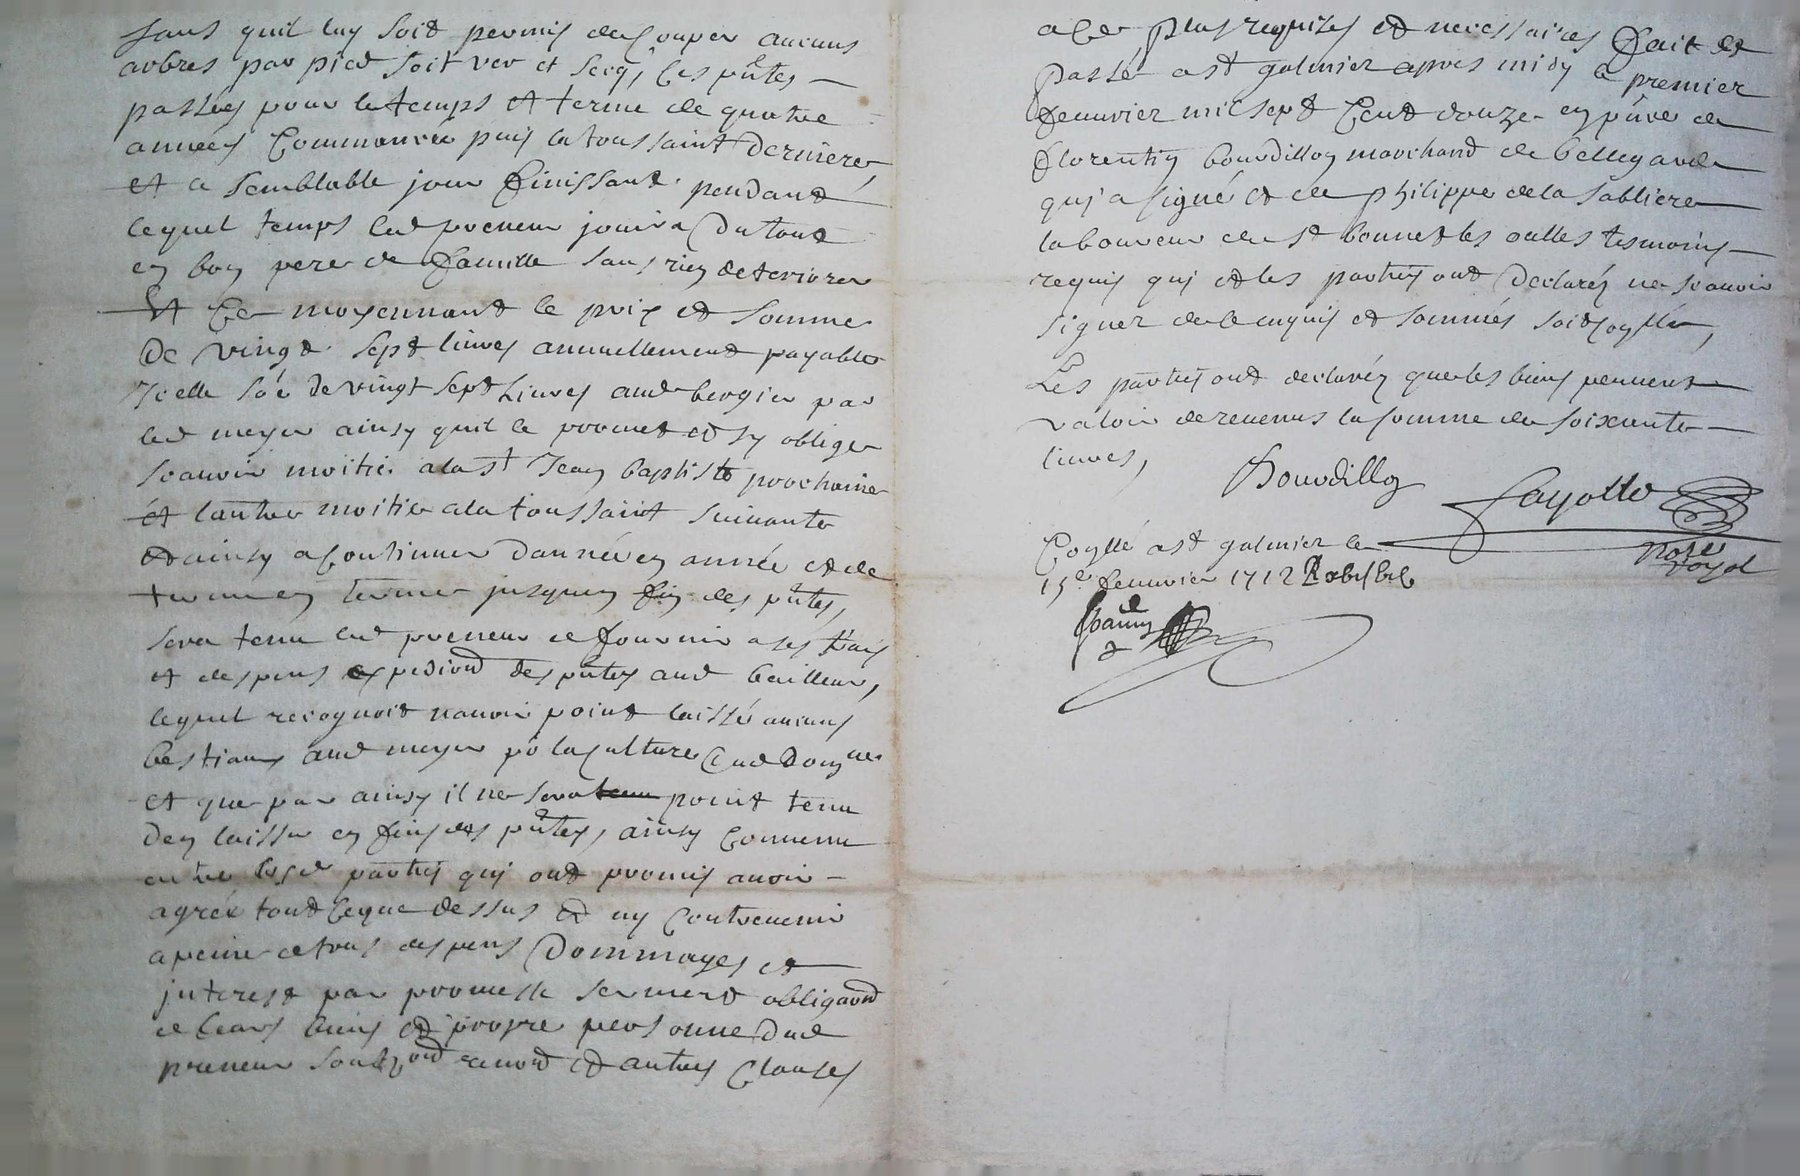 sans quil luy soit permis de couper aucuns
arbres par pied soit ver et secq, les pñtes
passées pour le temps et terme de quatre
années commencée puis la toussaint derniere
et a semblable jour finissant pendant
lequel temps led preneur jouira du tout
en bon pere de famille sans rien deteriorer
Et ce moyennant le prix et somme
de vingt sept livres annuellement payable
Icelle sõe de vingt sept Livres aud bergier par
led meyer ainsy quil le promet et sy oblige
scauoir moitié a la st Jean baptiste prochaine
et lautre moitié a la toussaint suivante
et ainsy a continuer dannée en année et de
terme en terme jusques en fin des pñtes,
sera tenu led preneur de fournir a ses frais
et despens expedions des pñtes aud bailleur,
lequel recognoit nauoir point laissé aucuns
bestiaux aud meyer po la culture dud domne
et que par ainsy il ne sera point tenu
den laisser en fin des pñtes, ainsy conuenu
entre lesd parties qui ont promis auoir
agréé tout ceque dessus et ny contreuenir
a peine de tous despens dommages et
interest par promesse serment obligaõn
de leurs biens et propre personne dud
preneur renond et autres clauses
a ce plus requises et necessaires fait et
passé a st galmier apres midy le premier
feuurier mil sept cent douze en pñce de
florentin bourdillon marchand de bellegarde
qui a signé et de philippe de la sabliere
laboureur de st bonnet les oulles tesmoins
requis qui et les parties ont declaréz ne scauoir
signer de ce enquis et sommés soit conllé,
Les parties ont declaréz que les biens peuuent
valoir de reuenus la somme de soixante
liures,
Bourdillon
Fayolle
nore royal
Conllé a st galmier le
15e feuurier 1712 R